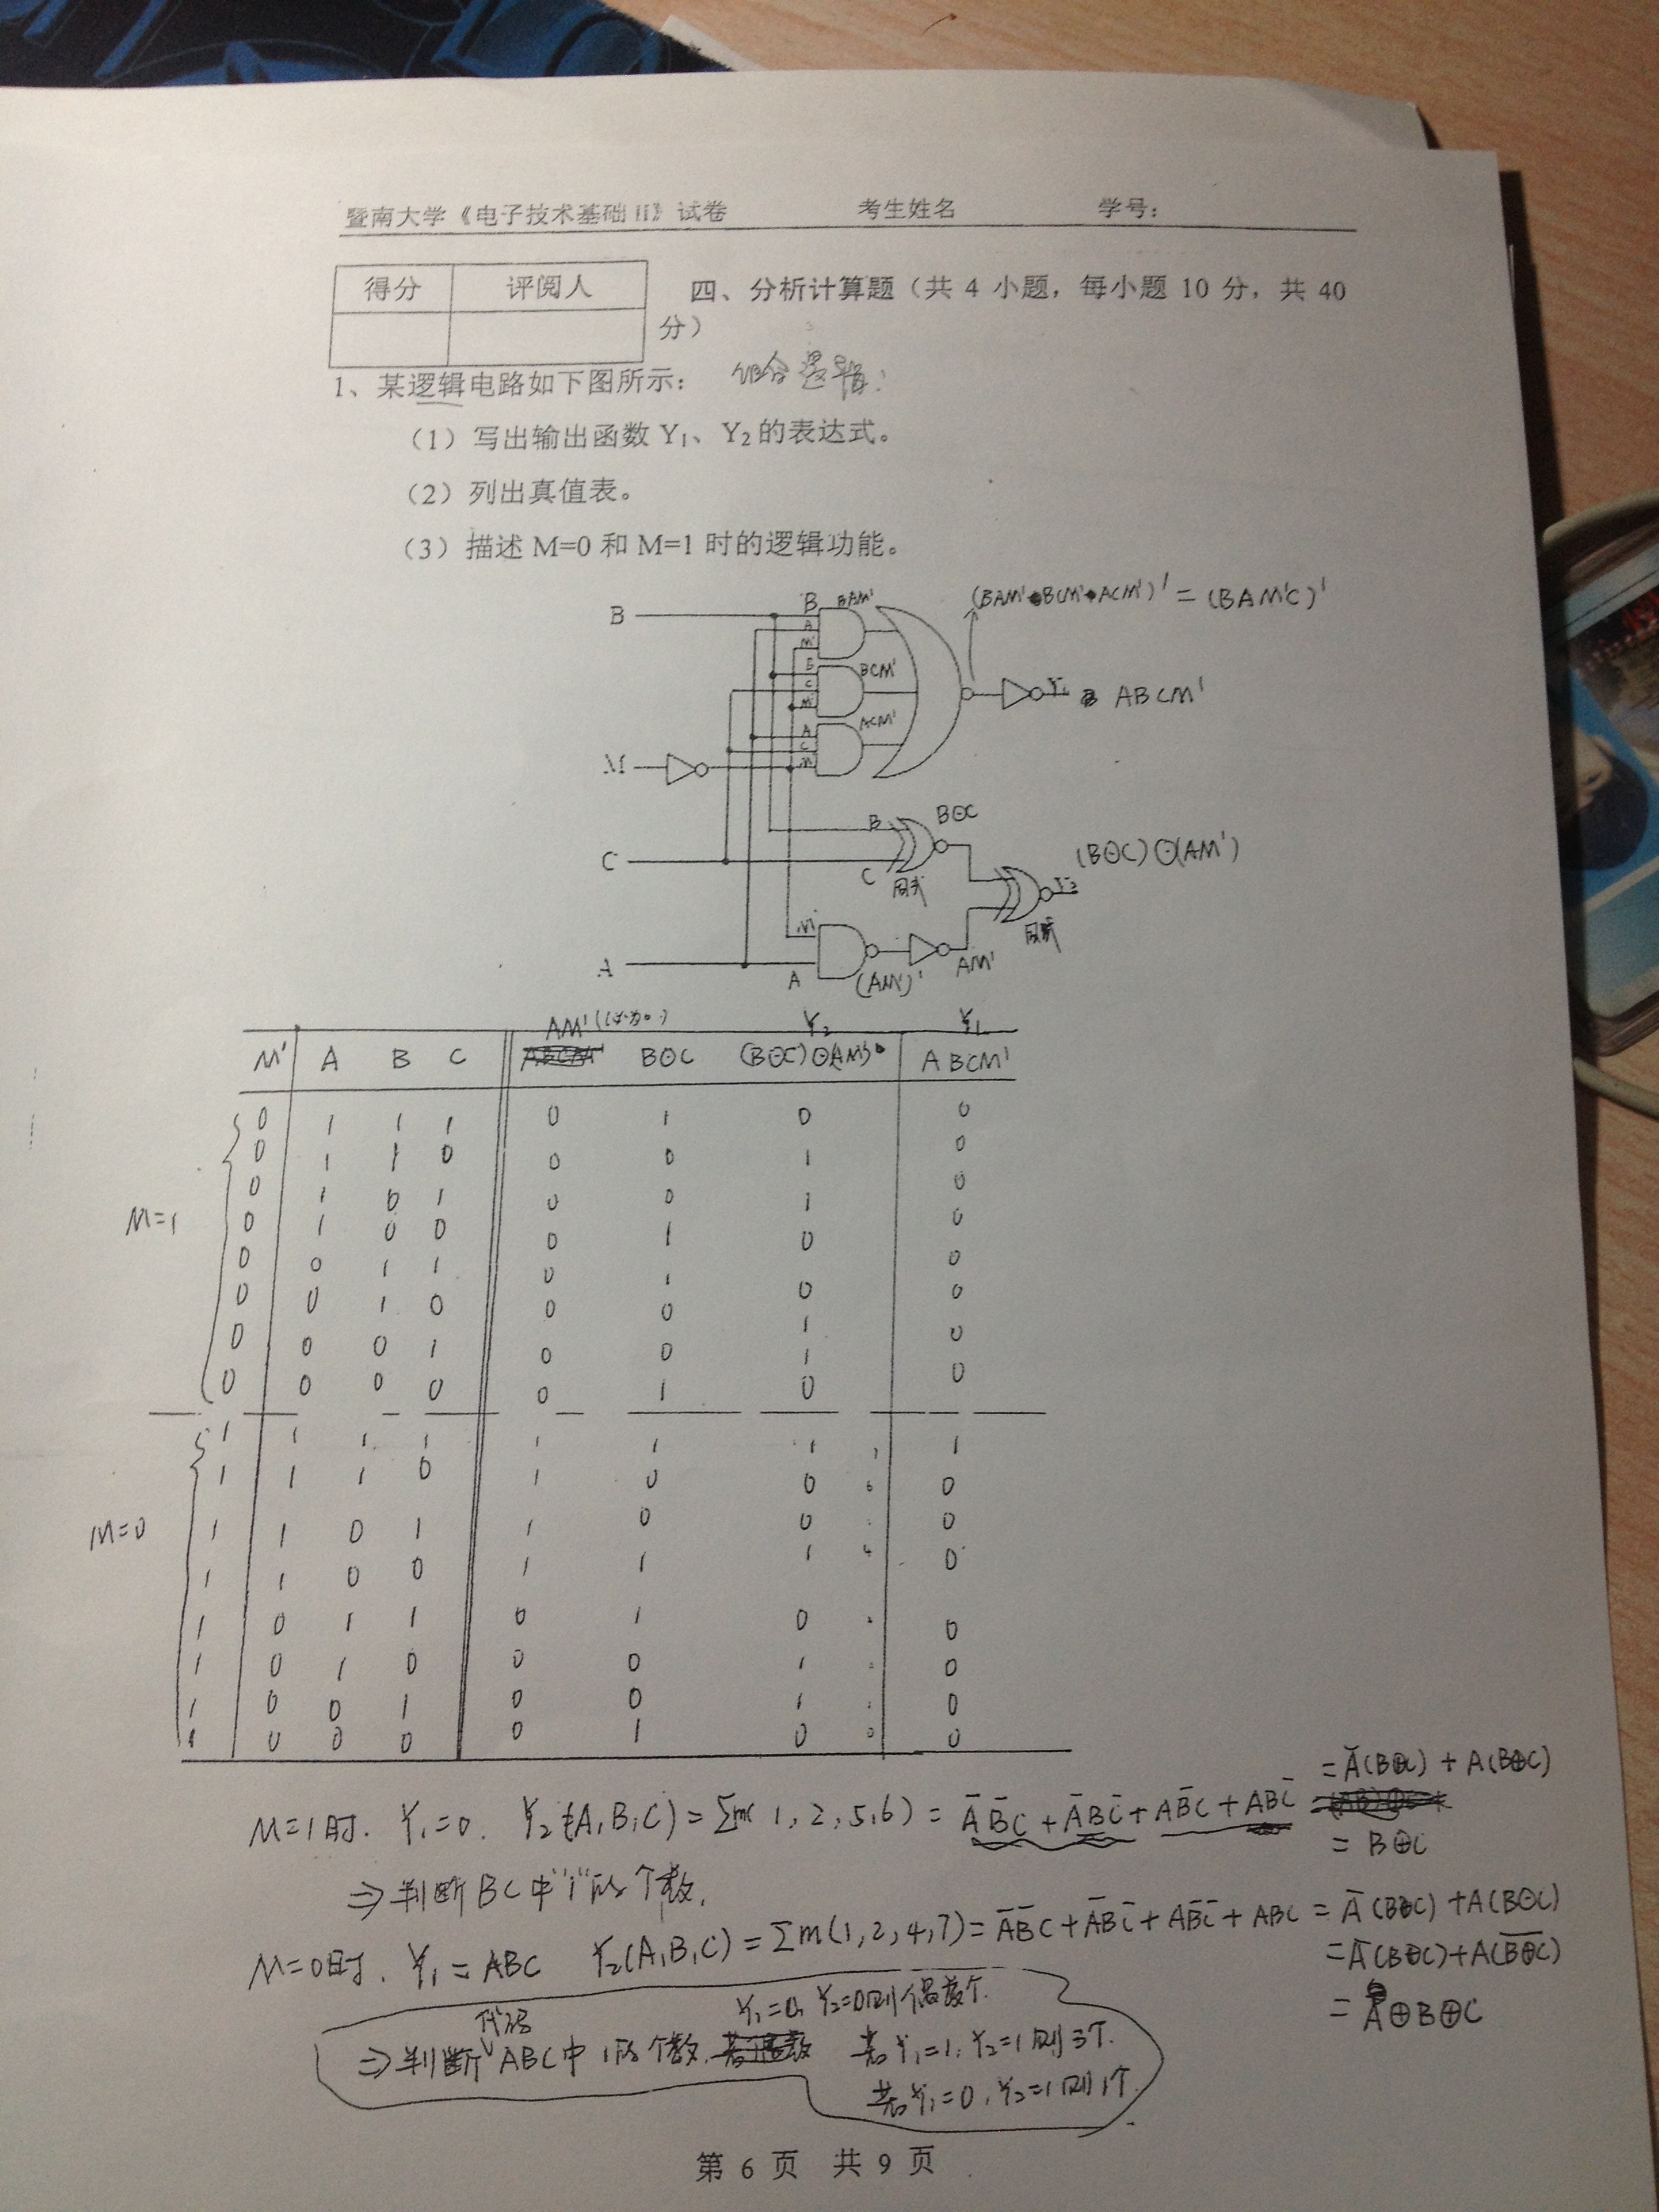 暨南大学《电子技术基础 II》试卷 考生姓名 学号：
得分 评阅人
四、分析计算题（共 4 小题，每小题 10 分，共 40
分）
1、某逻辑电路如下图所示： 组合逻辑！
（1）写出输出函数 Y₁、Y₂的表达式。
（2）列出真值表。
（3）描述 M=0 和 M=1 时的逻辑功能。
(BAM'·BCM'·ACM')' = (BAM'C)'
B B BAM'
A
M'
B BCM'
C
M' Y₁ ABCM'
A ACM'
C
M M'
B B⊙C
C (B⊙C)⊙(AM')
C 同或 Y₂
M' 同或
A A (AM')' AM'
AM' Y₂ Y₁
M' A B C B⊙C (B⊙C)⊙(AM') ABCM'
0 1 1 1 0 1 0 0
0 1 1 0 0 0 1 0
0 1 0 1 0 0 1 0
M=1 0 1 0 0 0 1 0 0
0 0 1 1 0 1 0 0
0 0 1 0 0 0 1 0
0 0 0 1 0 0 1 0
0 0 0 0 0 1 0 0
1 1 1 1 1 1 1 7 1
1 1 1 0 1 0 0 6 0
M=0 1 1 0 1 1 0 0 0
1 1 0 0 1 1 1 4 0
1 0 1 1 0 1 0 0
1 0 1 0 0 0 1 0
1 0 0 1 0 0 1 0
1 0 0 0 0 1 0 0 0
M=1时. Y₁=0. Y₂(A,B,C)=Σm(1,2,5,6) = A̅B̅C + A̅BC̅ + AB̅C + ABC̅ = A̅(B⊕C) + A(B⊕C)
= B⊕C
⇒判断BC中"1"的个数.
M=0时. Y₁=ABC Y₂(A,B,C)=Σm(1,2,4,7)= A̅B̅C + A̅BC̅ + AB̅C̅ + ABC = A̅(B⊕C) + A(B⊙C)
=A̅(B⊕C)+A(B⊕C)̅
= A⊕B⊕C
Y₁=0, Y₂=0则偶数个.
⇒判断代码ABC中1的个数. 若Y₁=1, Y₂=1则3个.
若Y₁=0, Y₂=1则1个.
第 6 页 共 9 页